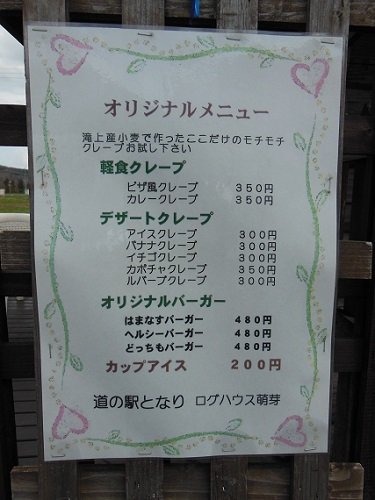 オリジナルメニュー
海上産小麦で作ったここだけのモチモチ
クレープお試し下さい
軽食クレープ
ピザ風クレープ　350円
カレークレープ　350円
デザートクレープ
アイスクレープ　300円
バナナクレープ　300円
イチゴクレープ　300円
カボチャクレープ　350円
ルバーブクレープ　300円
オリジナルバーガー
はまなすバーガー　480円
ヘルシーバーガー　480円
どっちもバーガー　480円
カップアイス　200円
道の駅となり　ログハウス萌芽